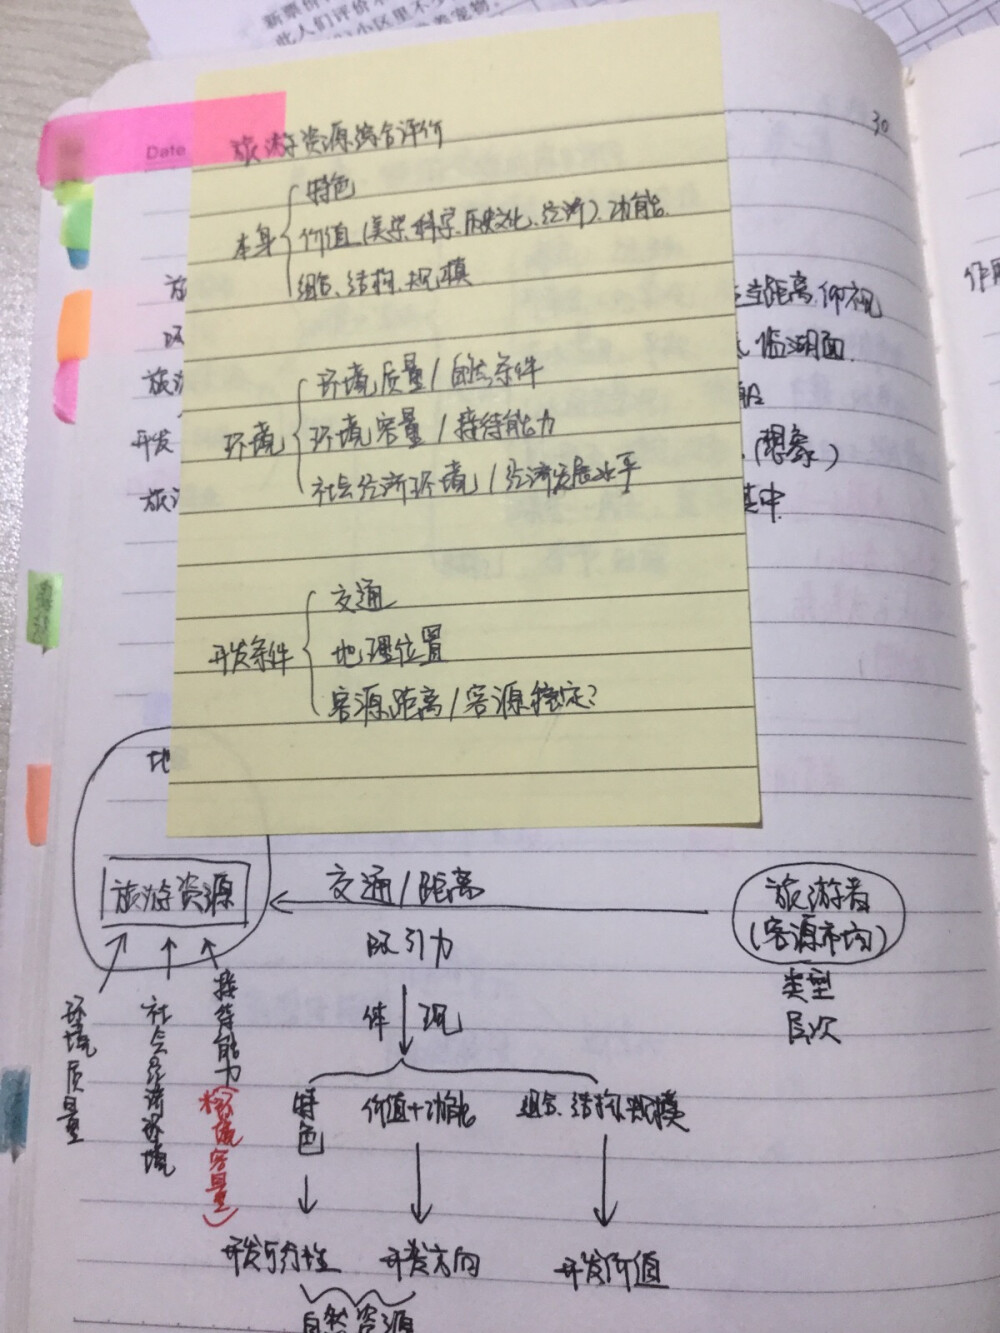 此人们评价
养宠物，
30
Date
旅游资源综合评价
本身
特色
价值(美学、科学、历史文化、经济)、功能
组合、结构、规模
环境
环境质量/自然条件
环境容量/接待能力
社会经济环境/经济发展水平
开发条件
交通
地理位置
客源距离/客源稳定?
距离、仰视
临湖面
(想象)
其中
开发
地
旅游资源
交通/距离
旅游者
(客源市场)
吸引力
类型
层次
体现
环境质量
社会经济环境
接待能力(环境容量)
特色
价值+功能
组合、结构、规模
开发可行性
开发方向
开发价值
自然资源